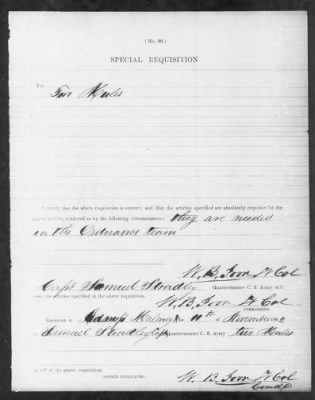 (No. 40.)
SPECIAL REQUISITION
For
Two Mules
I certify that the above requisition is correct; and that the articles specified are absolutely requisite for the
public service, rendered so by the following circumstances: they are needed
in the Ordnance team
W. B. Lt Col
Capt Samuel Quartermaster C. S. Army will
issue the articles specified in the above requisition.
W. B. Lt Col
COMMANDING.
Received at Camp 11th of November
Samuel Quartermaster C. S. Army, two Mules
in full of the above requisition.
(SIGNED DUPLICATES.)
W. B. Lt Col
Comdg